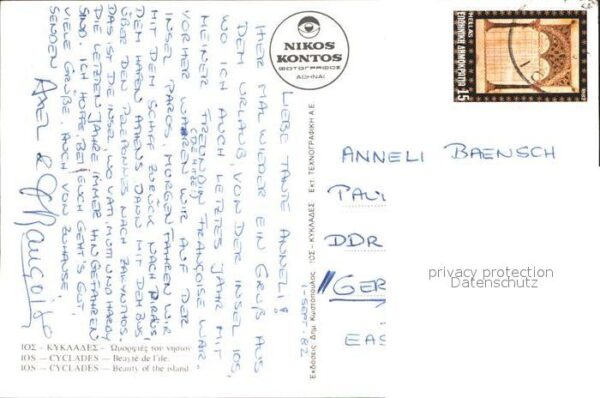 LIEBE TANTE ANNELI!
HIER MAL WIEDER EIN GRUß AUS
DEM URLAUB, VON DER INSEL IOS,
WO ICH AUCH LETZTES JAHR MIT
MEINER FREUNDIN FRANÇOISE WAR.
VORHER WAREN WIR AUF DER
INSEL PAROS, MORGEN FAHREN WIR
MIT DEM SCHIFF ZURÜCK NACH PIRÄUS,
DEM HAFEN ATHENS DANN MIT DEM BUS
ÜBER DEN PELEPONNES NACH ZAKYNTHOS.
DAS IST DIE INSEL, WO VATI, MUTTI UND HARDY
DIE LETZTEN JAHRE IMMER HINGEFAHREN
SIND. ICH HOFFE, BEI EUCH GEHT'S GUT,
VIELE GRÜßE AUCH VON ZUHAUSE,
SENDEN AXEL & Françoise
ΙΟΣ — ΚΥΚΛΑΔΕΣ - Ὀμορφιές τοῦ νησιοῦ
IOS — CYCLADES — Beauté de l'île.
IOS — CYCLADES — Beauty of the island
NIKOS
KONTOS
ΦΩΤΟΓΡΑΦΟΣ
ΑΘΗΝΑΙ
Ἐκδόσεις Δημ. Κωστοπούλος ΙΟΣ - ΚΥΚΛΑΔΕΣ Ἐκτ. ΤΕΧΝΟΓΡΑΦΙΚΗ Α.Ε.
1. SEPT. 82
HELLAS
ΕΛΛΗΝΙΚΗ ΔΗΜΟΚΡΑΤΙΑ 15
ANNELI BAENSCH
DDR
GER
EAS
privacy protection
Datenschutz